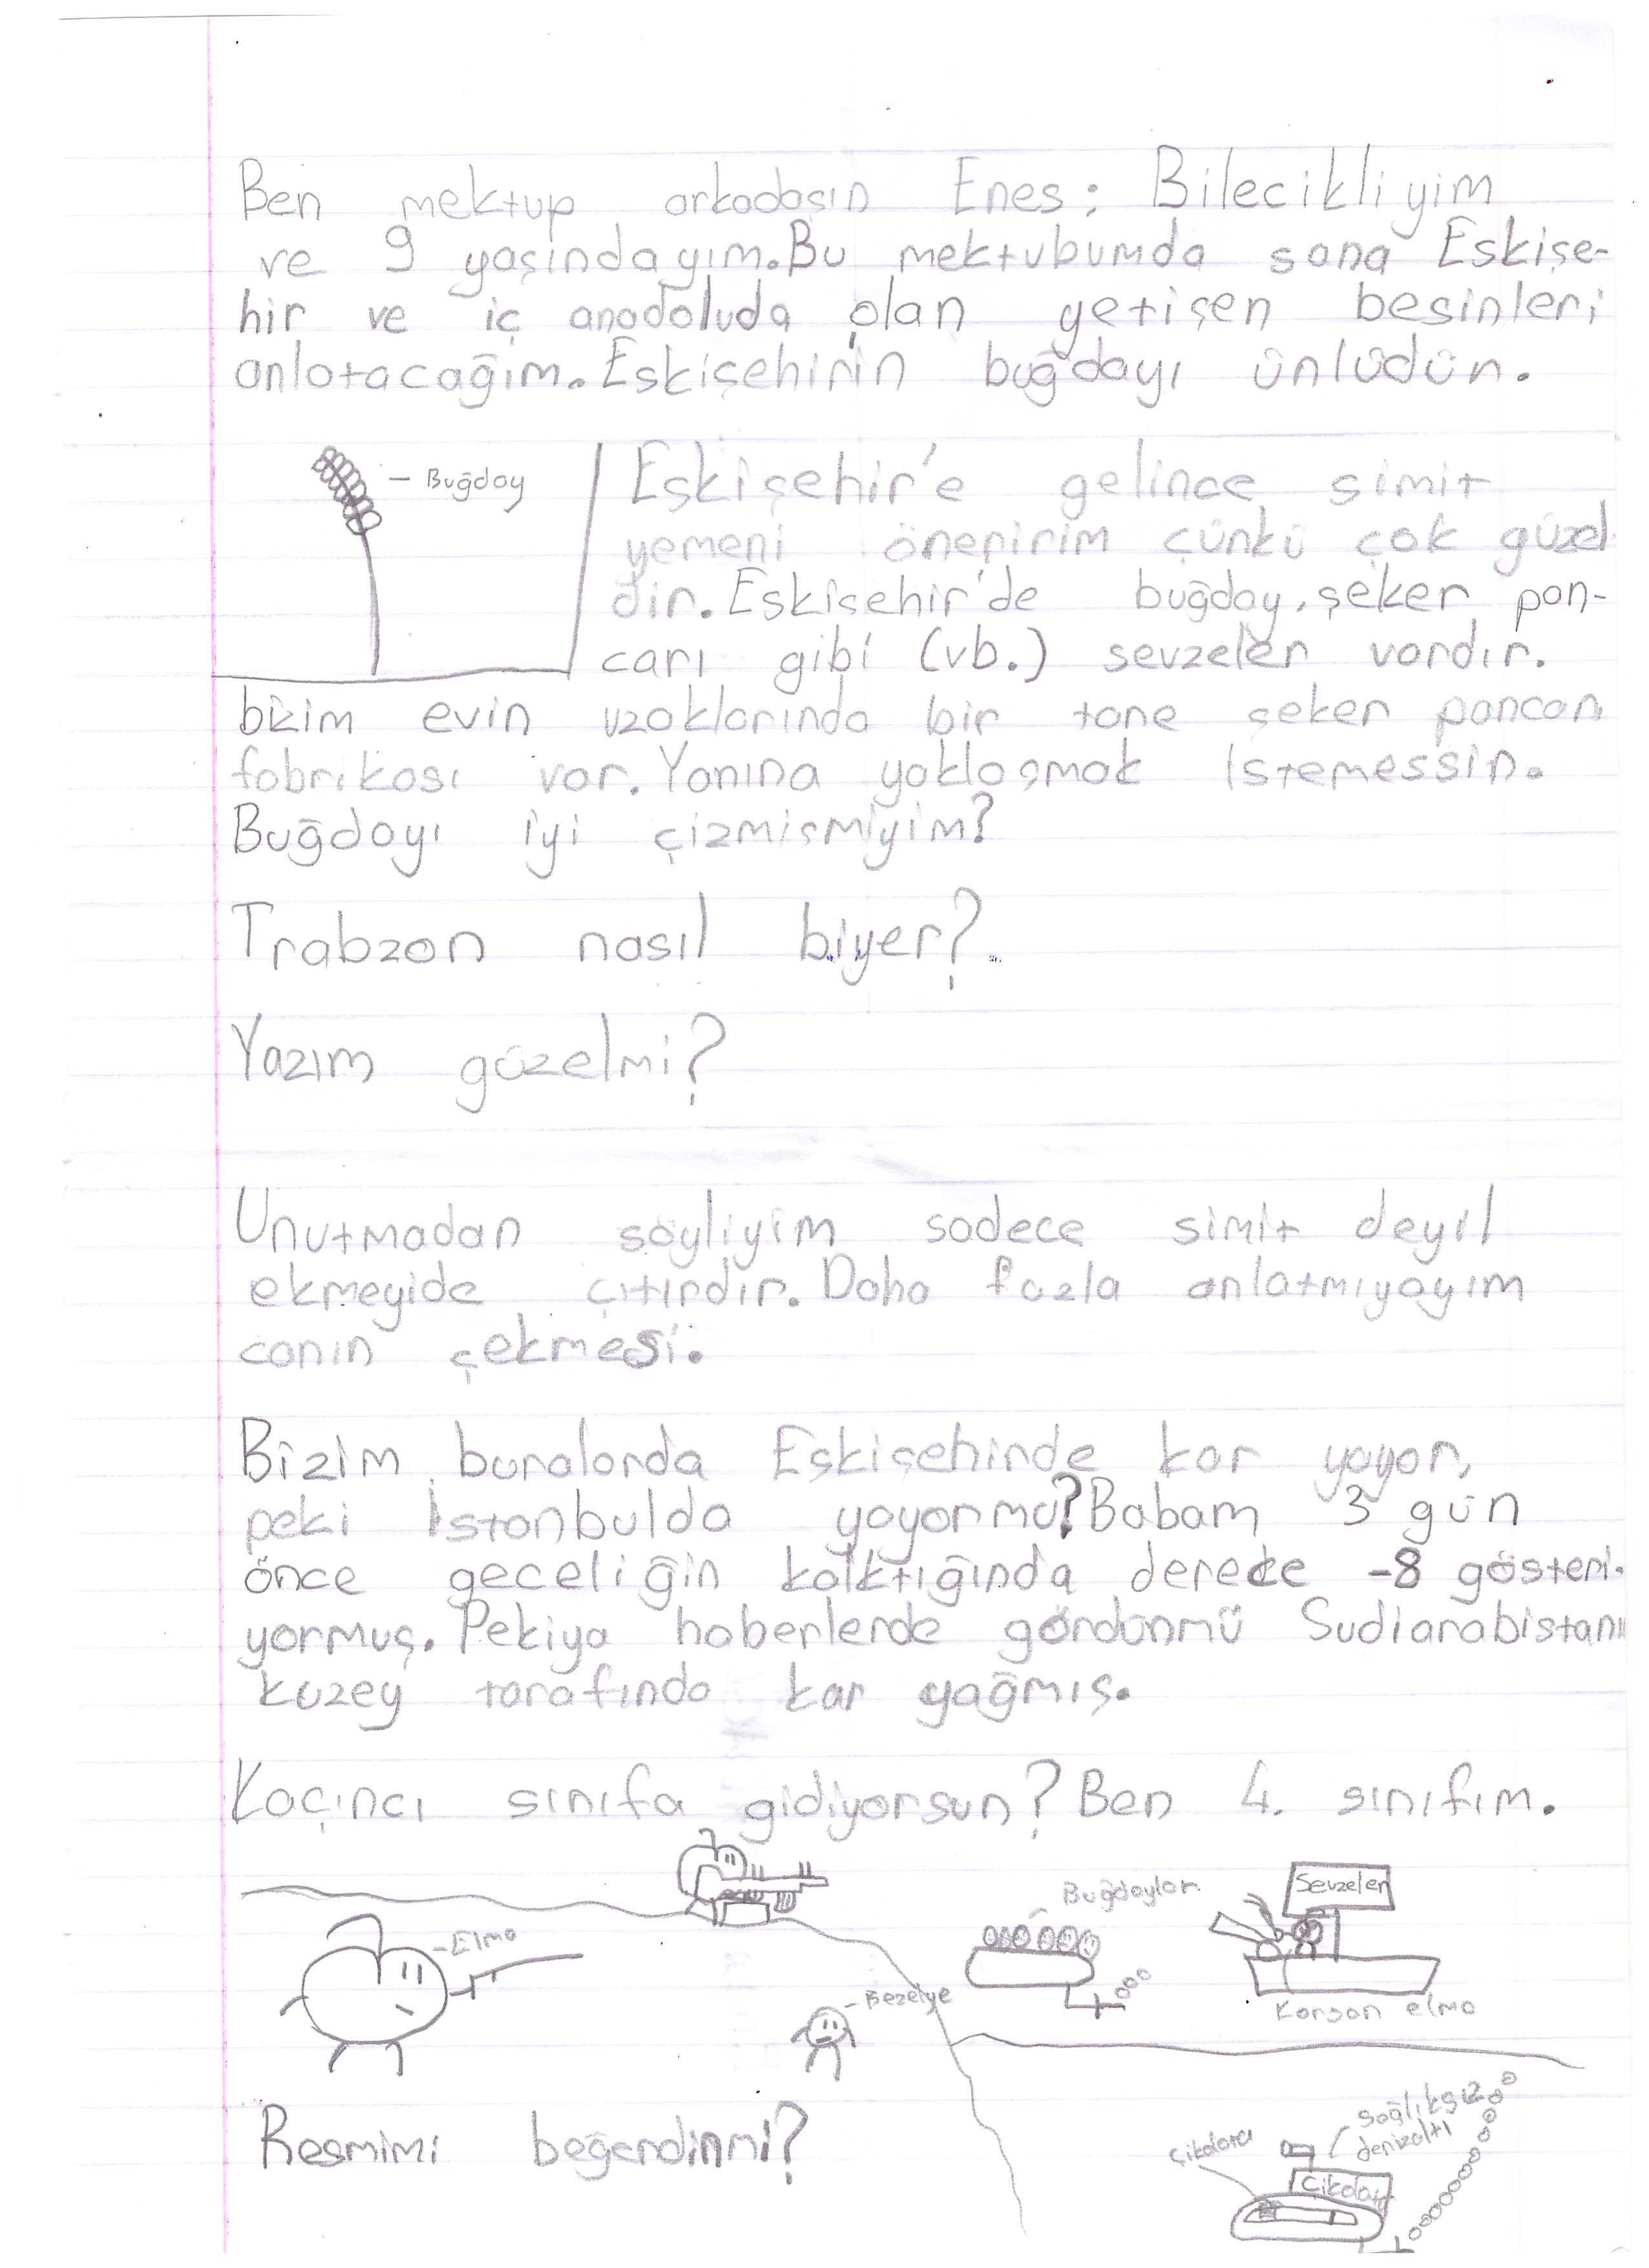 Ben mektup arkadaşın Enes; Bilecikliyim
ve 9 yaşındayım. Bu mektubumda sana Eskişe-
hir ve iç anadoluda olan yetişen besinleri
anlatacağım. Eskişehirin buğdayı ünlüdür.
- Buğday
Eskişehir'e gelince simit
yemeni öneririm çünkü çok güzel
dir. Eskişehir'de buğday, şeker pan-
carı gibi (vb.) sevzeler vardır.
bizim evin uzaklarında bir tane şeker pancarı
fabrikası var. Yanına yaklaşmak istemessin.
Buğdayı iyi çizmişmiyim?
Trabzon nasıl biyer?
Yazım güzelmi?
Unutmadan söyliyim sadece simit deyil
ekmeyide çıtırdır. Daha fazla anlatmıyayım
canın çekmesi.
Bizim buralarda Eskişehirde kar yayor,
peki İstanbulda yayormu? Babam 3 gün
önce geceliğin kalktığında derece -8 gösteri-
yormuş. Pekiya haberlerde gördünmü Sudiarabistanı
kuzey tarafında kar yağmış.
Kaçıncı sınıfa gidiyorsun? Ben 4. sınıfım.
Buğdaylar
Sevzeler
- Elma
- Bezelye
Korsan elma
Resmimi beğendinmi?
Çikolata
Sağlıksız
denizaltı
Çikolat